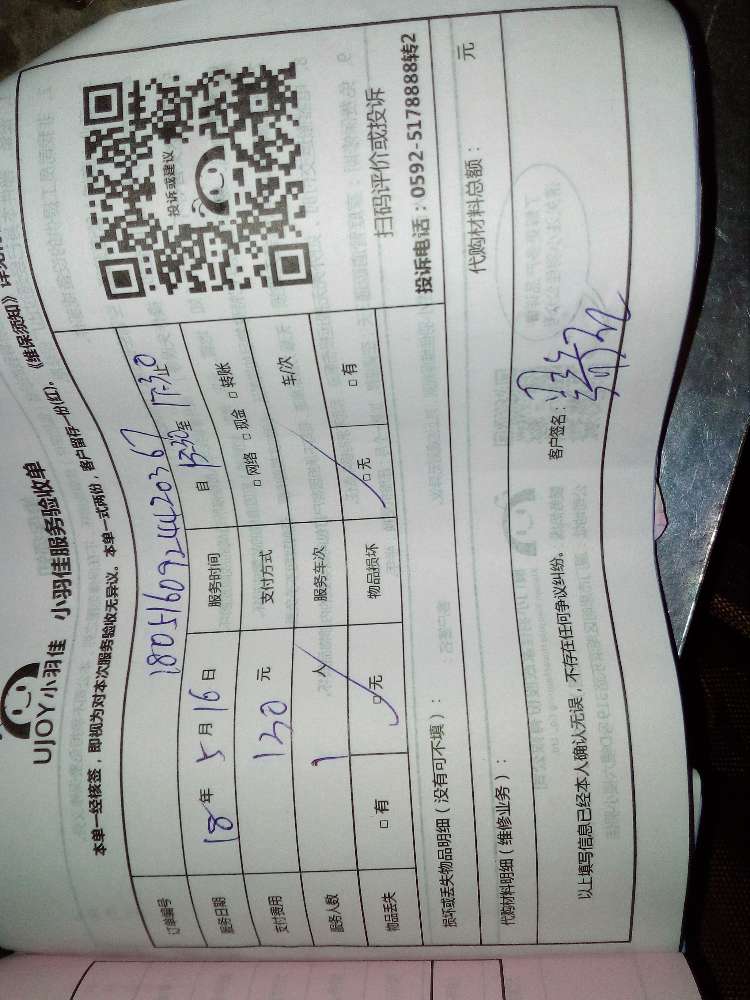 UJOY小羽佳 小羽佳服务验收单
本单一经核签，即视为对本次服务验收无异议。本单一式两份，客户留存一份(红)，《维保须知》
订单编号 1805160924420367
服务日期 18年5月16日 服务时间 自13:30至17:30止
支付费用 130元 支付方式 □网络 □现金 □转账
服务人数 1人 服务车次 车/次
物品丢失 □有 □无 物品损坏 □无 □有
投诉或建议
扫码评价或投诉
投诉电话：0592-5178888转2
损坏或丢失物品明细（没有可不填）：
代购材料明细（维修业务）： 代购材料总额： 元
以上填写信息已经本人确认无误，不存在任何争议纠纷。 客户签名：